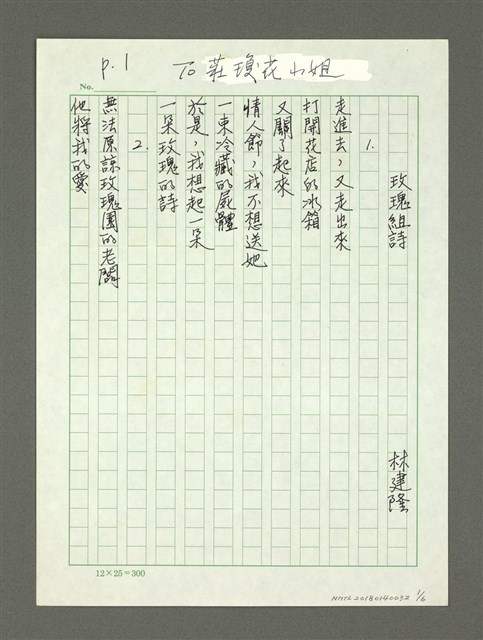 P.1
To 莊瓊花小姐
No.
玫瑰組詩
林建隆
1.
走進去，又走出來
打開花店的冰箱
又關了起來
情人節，我不想送她
一束冷藏的屍體
於是，我想起一朵
一朵玫瑰的詩
2.
無法原諒玫瑰園的老闆
他將我的愛
12×25=300
NMTL20180140032 1/6